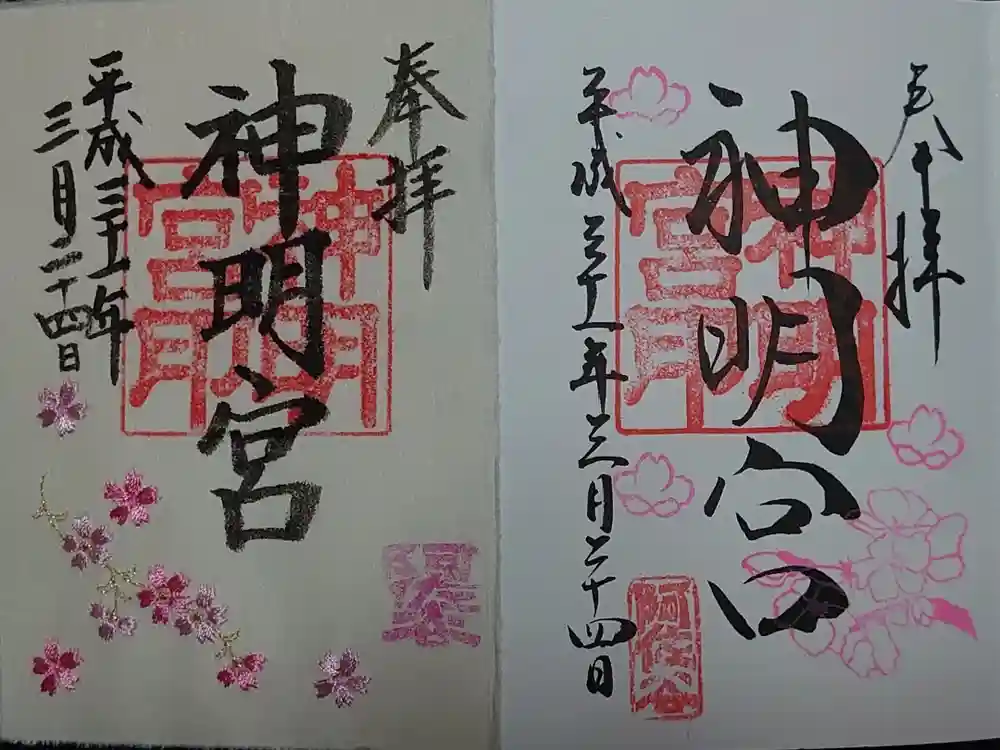 奉拝
神明宮
平成三十一年
三月二十四日
神明
宮
奉拝
神明宮
平成三十一年三月二十四日
神明
宮
阿佐ヶ谷